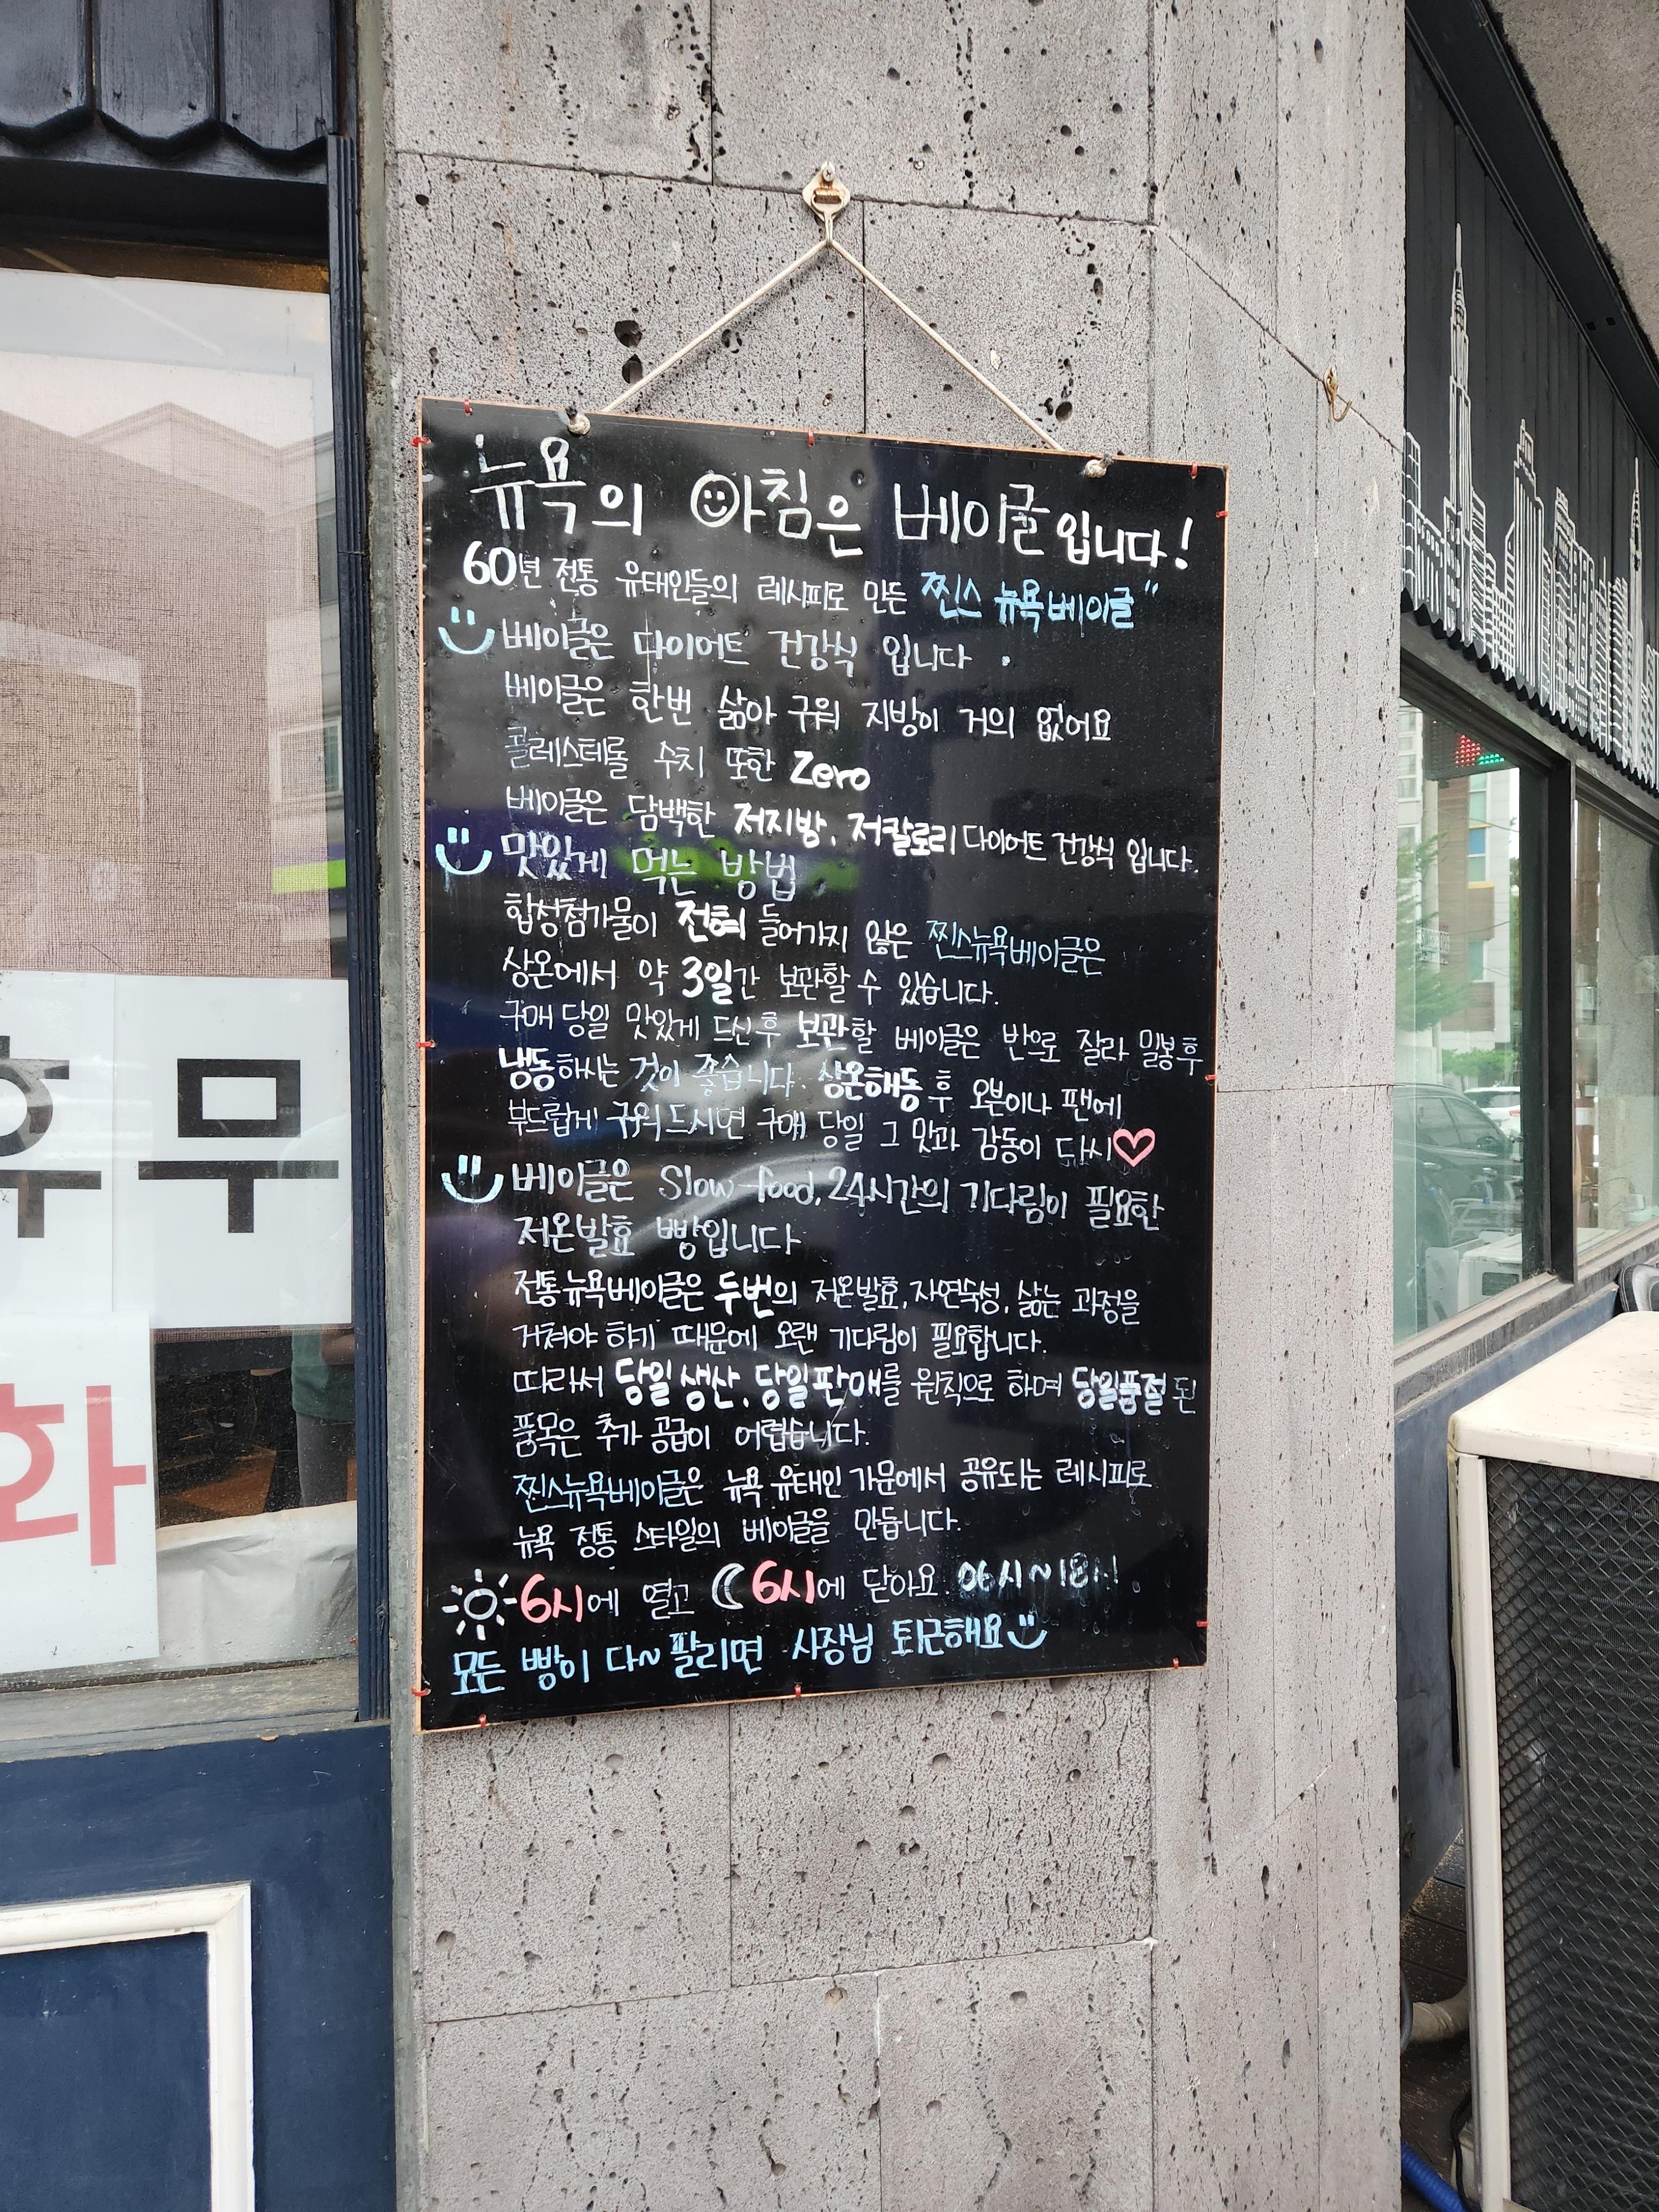 뉴욕의 아침은 베이글입니다!
60년 전통 유태인들의 레시피로 만든 찐스 뉴욕베이글"
베이글은 다이어트 건강식 입니다.
베이글은 한번 삶아 구워 지방이 거의 없어요
콜레스테롤 수치 또한 Zero
베이글은 담백한 저지방, 저칼로리 다이어트 건강식 입니다.
맛있게 먹는 방법
합성첨가물이 전혀 들어가지 않은 찐스뉴욕베이글은
상온에서 약 3일간 보관할 수 있습니다.
구매 당일 맛있게 드신 후 보관할 베이글은 반으로 잘라 밀봉 후
냉동하시는 것이 좋습니다. 상온해동 후 오븐이나 팬에
부드럽게 구워 드시면 구매 당일 그 맛과 감동이 다시♡
베이글은 Slow-food, 24시간의 기다림이 필요한
저온발효 빵입니다
전통뉴욕베이글은 두번의 저온발효, 자연숙성, 삶는 과정을
거쳐야 하기 때문에 오랜 기다림이 필요합니다.
따라서 당일생산, 당일판매를 원칙으로 하며 당일품절 된
품목은 추가 공급이 어렵습니다.
찐스뉴욕베이글은 뉴욕 유태인 가문에서 공유되는 레시피로
뉴욕 정통 스타일의 베이글을 만듭니다.
6시에 열고 6시에 닫아요 06시~18시
모든 빵이 다~ 팔리면 사장님 퇴근해요
휴무
화